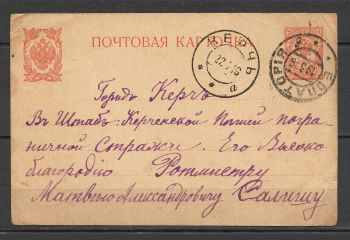 ПОЧТОВАЯ КАРТОЧКА
КЕРЧЬ
ЕВПАТОРІЯ
Городъ Керчь
Въ Штабъ Керченской Пѣшей погра-
ничной Стражи. Его Высоко
благородію Ротмистру
Матвѣю Александровичу Салищу